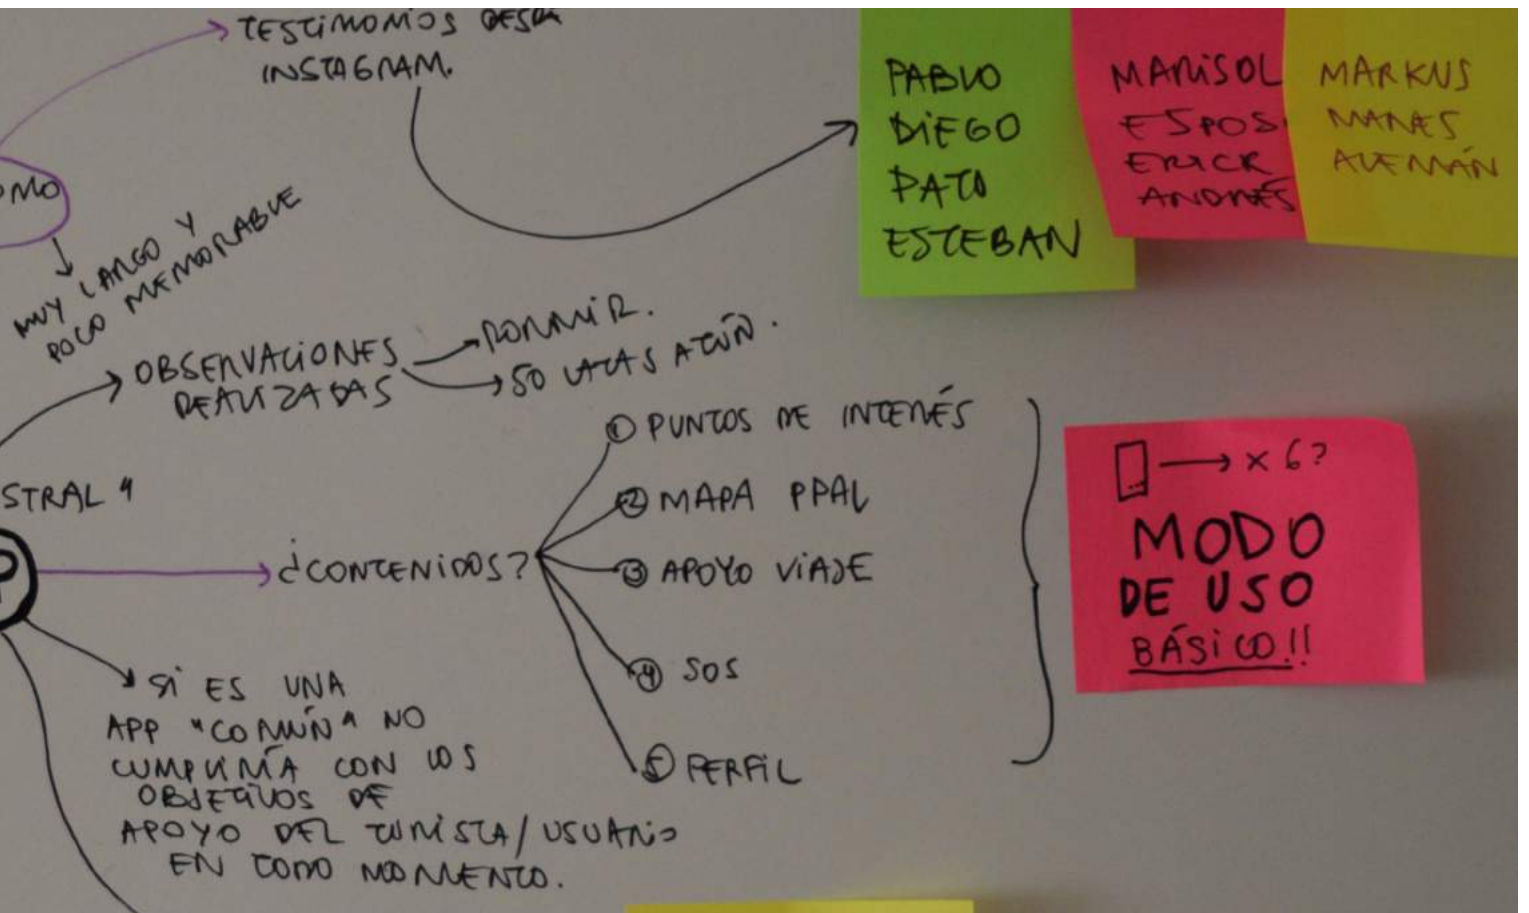 TESTIMONIOS DESDE
INSTAGRAM.
PABLO
DIEGO
PATO
ESTEBAN
MARISOL
ESPOS
ERICK
ANDRÉS
MARKUS
MANES
ALEMÁN
OMO
MUY LARGO Y
POCO MEMORABLE
OBSERVACIONES
REALIZADAS
DORMIR.
50 LATAS ATÚN.
STRAL"
P
¿CONTENIDOS?
① PUNTOS DE INTERÉS
② MAPA PPAL
③ APOYO VIAJE
④ SOS
⑤ PERFIL
→ x 6?
MODO
DE USO
BÁSICO!!
SI ES UNA
APP "COMÚN" NO
CUMPLIRÍA CON LOS
OBJETIVOS DE
APOYO DEL TURISTA/USUARIO
EN TODO MOMENTO.